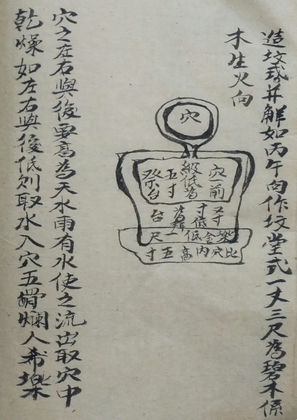 造坟式并解如丙午向作坟堂式一丈三尺为碧木係
木生火向
穴
穴前
级低為
五寸
祭台
又寸低
為
台
祭金低一尺
比穴内高五寸
穴之左右與後要高為天水雨有水使之流出取穴中
乾燥如左右與後低則取水入穴五髒爛人希